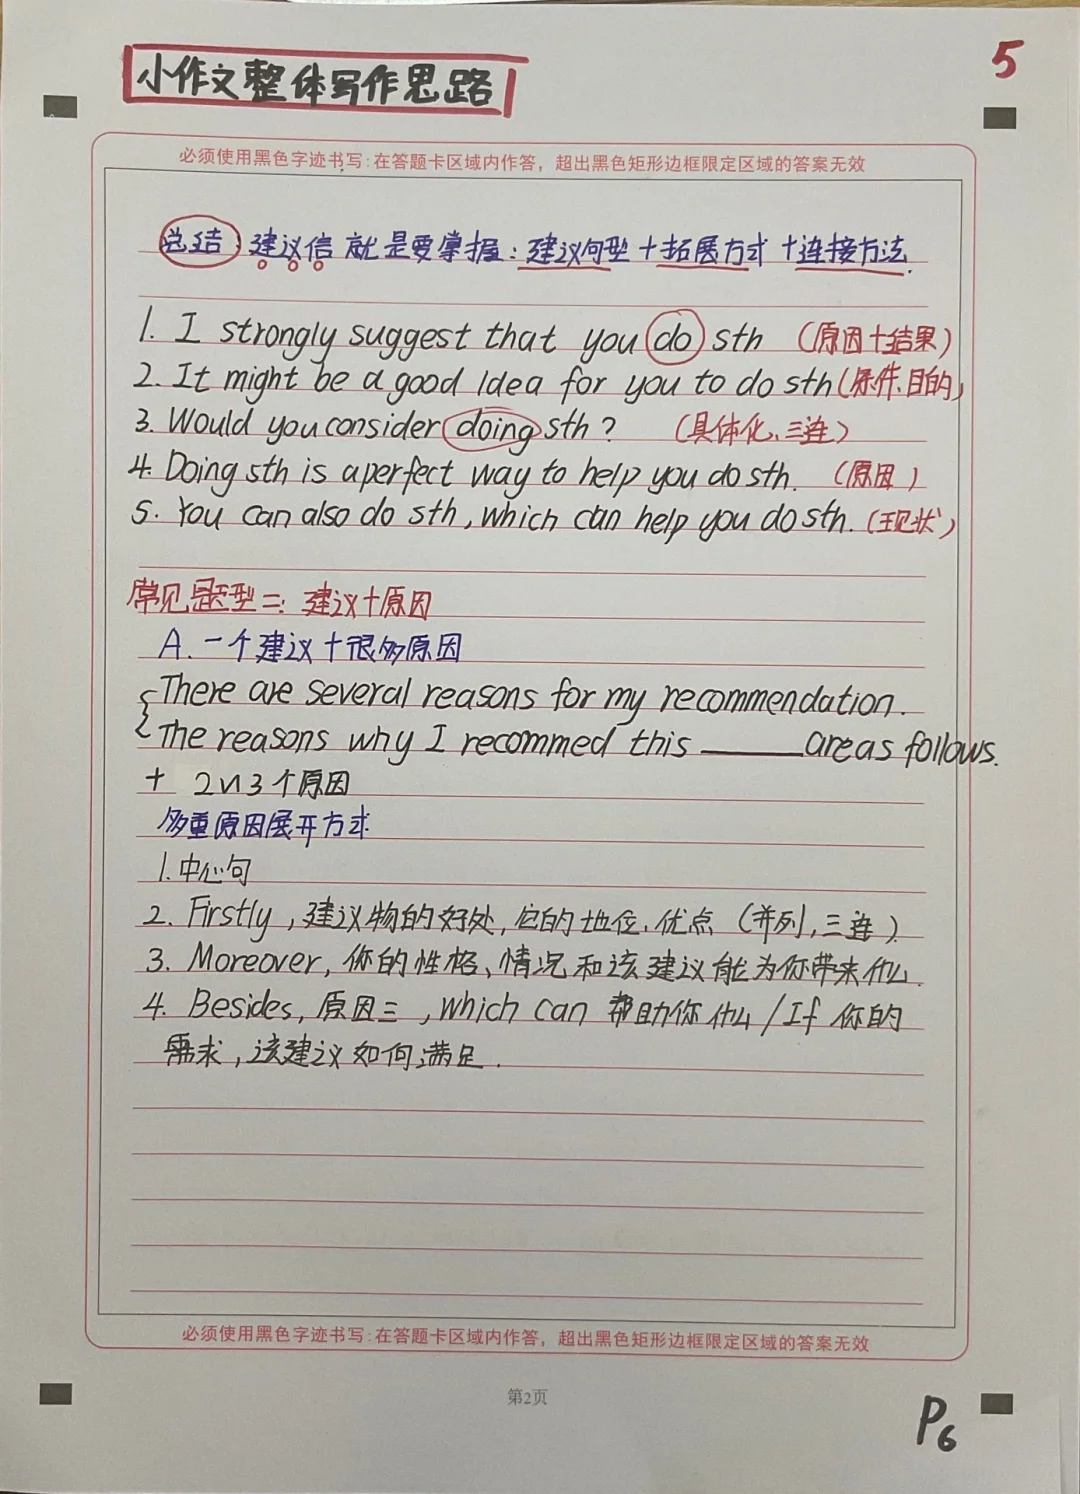 小作文整体写作思路
5
必须使用黑色字迹书写:在答题卡区域内作答，超出黑色矩形边框限定区域的答案无效
总结 建议信 就是要掌握:建议句型+拓展方式+连接方法.
1. I strongly suggest that you do sth (原因+结果)
2. It might be a good Idea for you to do sth (条件、目的)
3. Would you consider doing sth? (具体化、三连)
4. Doing sth is a perfect way to help you do sth. (原因)
5. You can also do sth, which can help you do sth. (现状)
常见题型二: 建议+原因
A. 一个建议+很多原因
There are several reasons for my recommendation.
The reasons why I recommed this ______ are as follows.
+ 2∽3个原因
多重原因展开方式
1.中心句
2. Firstly, 建议物的好处, 它的地位、优点 (并列,三连)
3. Moreover, 你的性格、情况和该建议能为你带来什么.
4. Besides, 原因三, which can 帮助你什么/If 你的
需求, 该建议如何满足.
必须使用黑色字迹书写:在答题卡区域内作答，超出黑色矩形边框限定区域的答案无效
第2页
P6